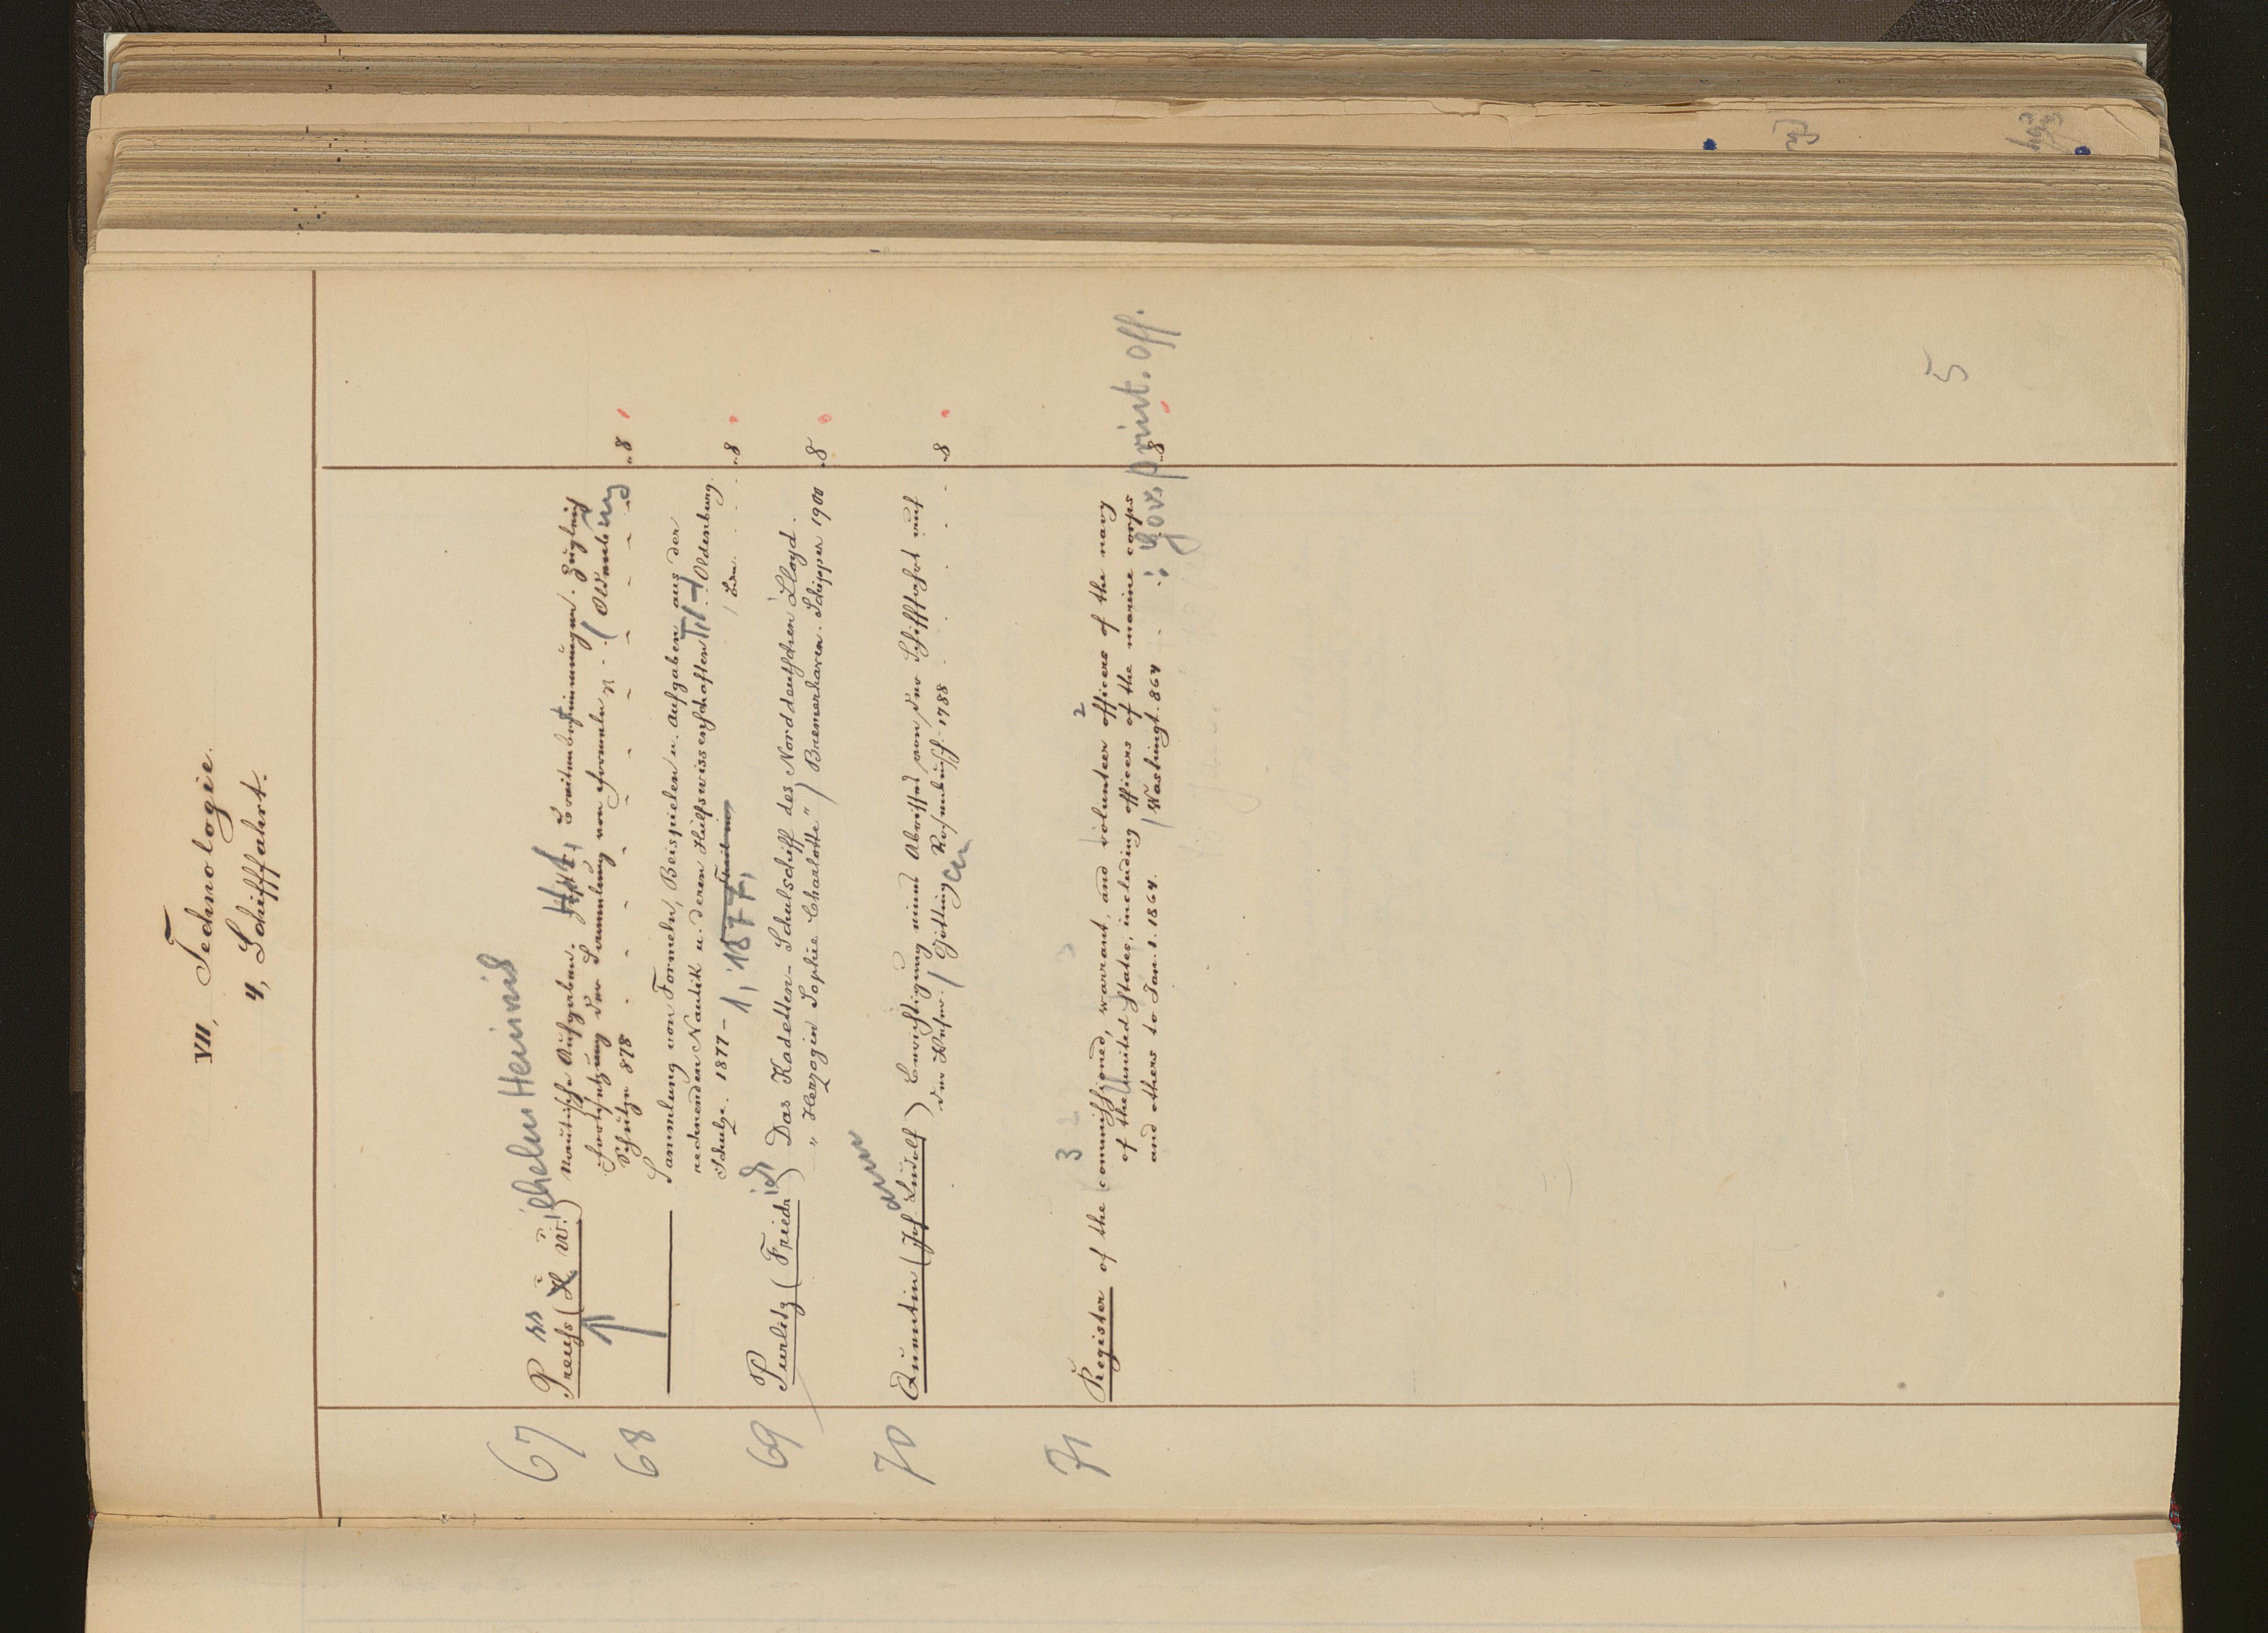 VII, Technologie.
4, Schifffahrt.
67 Preuss (H. W. ilhelm Heinrich) Nautische Aufgaben. Heft, Breitenbestimmungen. Zugleich
Fortsetzung der Sammlung von Formeln ... (Oldenburg
Schulze 878 . . . . . . . . . 8
68 —— Sammlung von Formeln, Beispielen u. Aufgaben aus der
rechnenden Nautik u. deren Hülfswissenschaften Tl 1 - / Oldenburg.
Schulze. 1877 - 1, 1877, / Bdn. . . . 8
69 Purlitz (Friedr ich) Das Kadetten-Schulschiff des Norddeutschen Lloyd.
„Herzogin Sophie Charlotte“ / Bremerhaven. Schipper 1900 8
70 Quentin (Joh ann Ludolf) Berichtigung eines Abrisses von der Schifffahrt auf
der Weser. / Götting en Rosenbusch 1788 . . . . . 8
71 Register of the commissioned, warrant, and volunteer officers of the navy
3 2
of the United States, including officers of the marine corps
and others to Jan. 1. 1864. / Washingt. 864 - : Gov. print. Off. 8
5